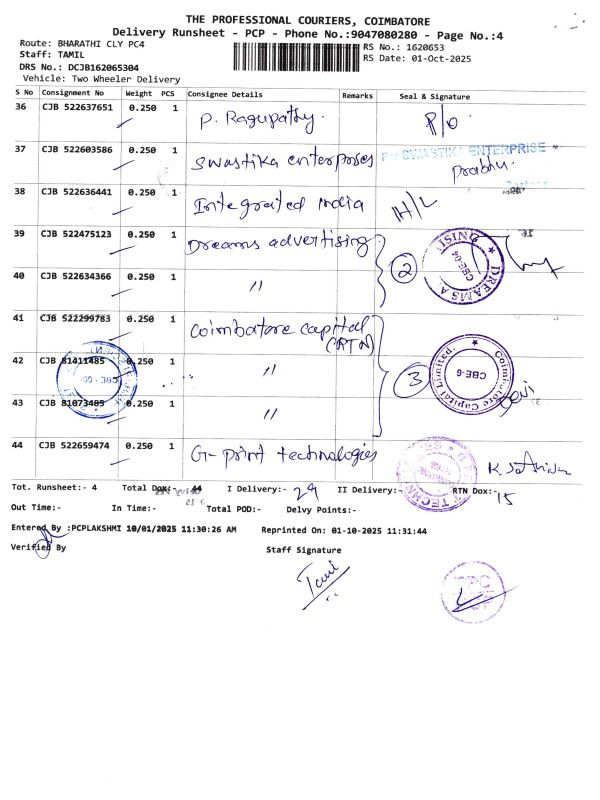 THE PROFESSIONAL COURIERS, COIMBATORE
Delivery Runsheet - PCP - Phone No.:9047080280 - Page No.:4
Route: BHARATHI CLY PC4
Staff: TAMIL
DRS No.: DCJB162065304
Vehicle: Two Wheeler Delivery
RS No.: 1620653
RS Date: 01-Oct-2025
S No Consignment No Weight PCS Consignee Details Remarks Seal & Signature
36 CJB 522637651 0.250 1 P. Ragupathy. P/O
37 CJB 522603586 0.250 1 Swastika enterprises SWASTIKA ENTERPRISE
Prabhu.
38 CJB 522636441 0.250 1 Integraited india H/L
39 CJB 522475123 0.250 1 Dreams advertising 2
40 CJB 522634366 0.250 1 "
DREAMS A ISING
CBE-04
41 CJB 522299783 0.250 1 Coimbatore capital
(RTN)
42 CJB 81411485 0.250 1 " 3
43 CJB 81073485 0.250 1 "
Coimbatore Capital Limited.
CBE-6
Devi
44 CJB 522659474 0.250 1 G-print technologies
Tot. Runsheet:- 4 Total Dox:- 44 I Delivery:- 29 II Delivery:- RTN Dox:- 15
Out Time:- In Time:- Total POD:- Delvy Points:-
Entered By :PCPLAKSHMI 10/01/2025 11:30:26 AM Reprinted On: 01-10-2025 11:31:44
Verified By Staff Signature
Tamil